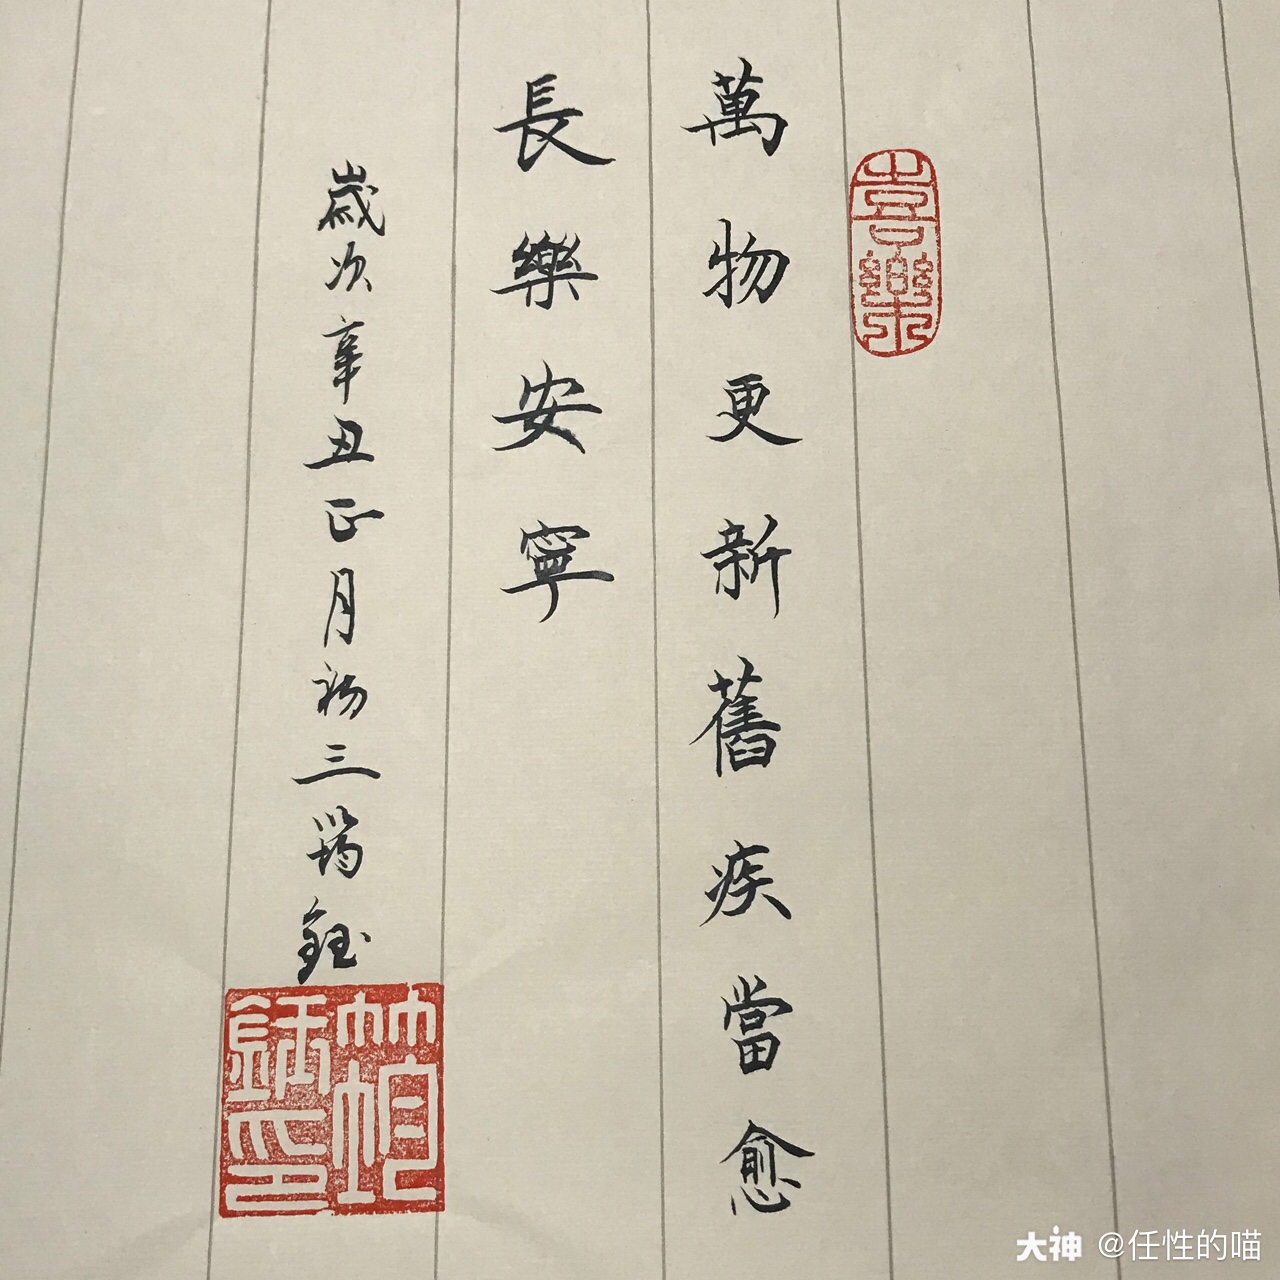 喜樂
萬物更新舊疾當愈
長樂安寧
歲次辛丑正月初三筠鈺
大神 @任性的喵